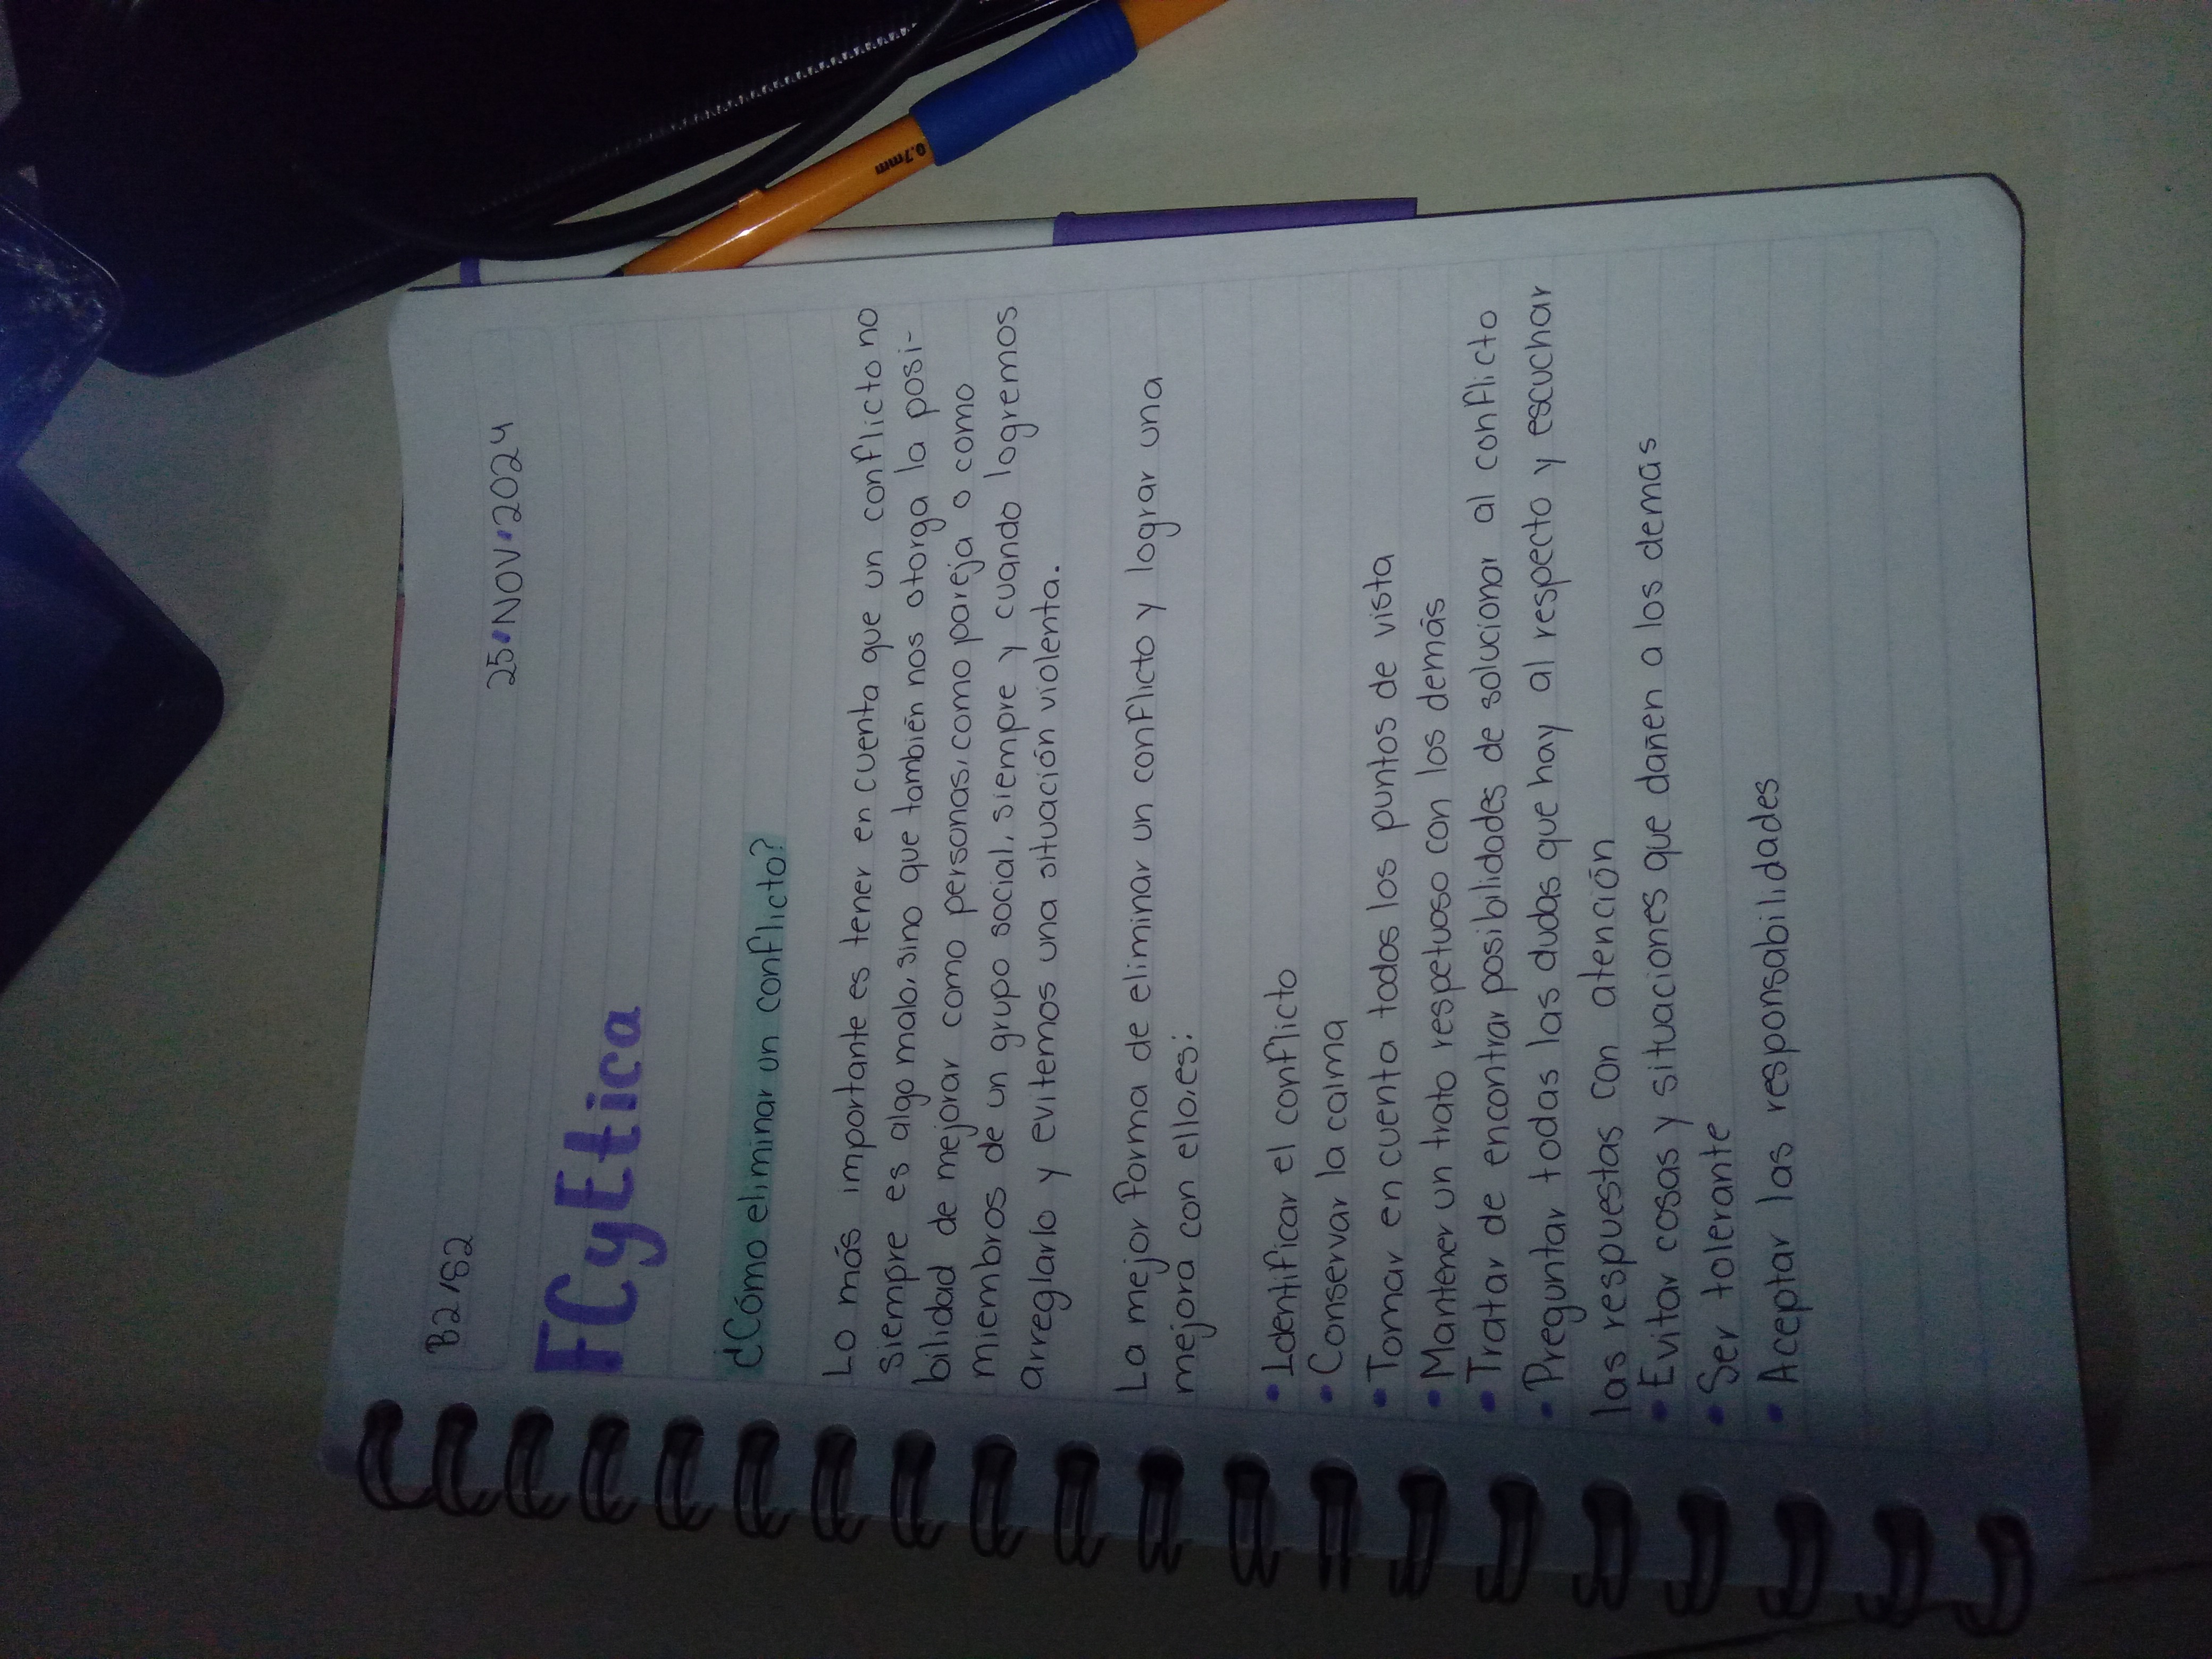 B2/S2
25•NOV•2024
FCyEtica
¿Cómo eliminar un conflicto?
Lo más importante es tener en cuenta que un conflicto no
siempre es algo malo, sino que también nos otorga la posi-
bilidad de mejorar como personas, como pareja o como
miembros de un grupo social, siempre y cuando logremos
arreglarlo y evitemos una situación violenta.
La mejor forma de eliminar un conflicto y lograr una
mejora con ello, es:
• Identificar el conflicto
• Conservar la calma
• Tomar en cuenta todos los puntos de vista
• Mantener un trato respetuoso con los demás
• Tratar de encontrar posibilidades de solucionar al conflicto
• Preguntar todas las dudas que hay al respecto y escuchar
las respuestas con atención
• Evitar cosas y situaciones que dañen a los demás
• Ser tolerante
• Aceptar las responsabilidades
0.7mm